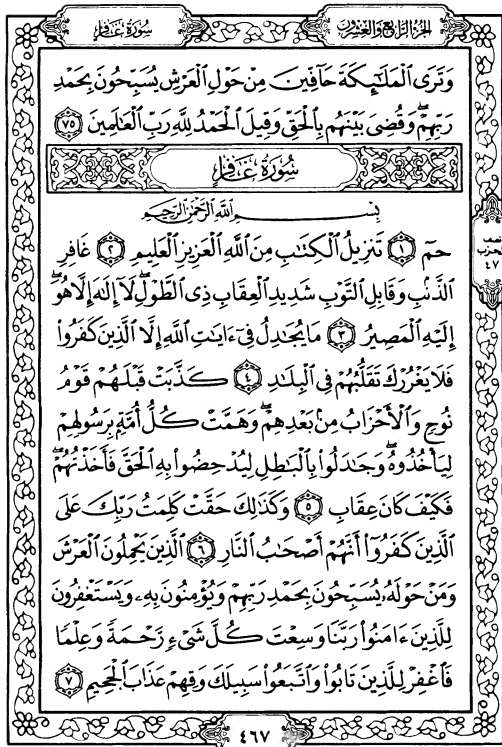 الجزء الرابع والعشرون
سورة غافر
وَتَرَى ٱلْمَلَٰٓئِكَةَ حَآفِّينَ مِنْ حَوْلِ ٱلْعَرْشِ يُسَبِّحُونَ بِحَمْدِ
رَبِّهِمْ ۖ وَقُضِىَ بَيْنَهُم بِٱلْحَقِّ وَقِيلَ ٱلْحَمْدُ لِلَّهِ رَبِّ ٱلْعَٰلَمِينَ ٧٥
سُورَةُ غَافِرٍ
بِسْمِ ٱللَّهِ ٱلرَّحْمَٰنِ ٱلرَّحِيمِ
حمٓ ١ تَنزِيلُ ٱلْكِتَٰبِ مِنَ ٱللَّهِ ٱلْعَزِيزِ ٱلْعَلِيمِ ٢ غَافِرِ
ٱلذَّنۢبِ وَقَابِلِ ٱلتَّوْبِ شَدِيدِ ٱلْعِقَابِ ذِى ٱلطَّوْلِ ۖ لَآ إِلَٰهَ إِلَّا هُوَ ۖ
إِلَيْهِ ٱلْمَصِيرُ ٣ مَا يُجَٰدِلُ فِىٓ ءَايَٰتِ ٱللَّهِ إِلَّا ٱلَّذِينَ كَفَرُوا۟
فَلَا يَغْرُرْكَ تَقَلُّبُهُمْ فِى ٱلْبِلَٰدِ ٤ كَذَّبَتْ قَبْلَهُمْ قَوْمُ
نُوحٍ وَٱلْأَحْزَابُ مِنۢ بَعْدِهِمْ ۖ وَهَمَّتْ كُلُّ أُمَّةٍۭ بِرَسُولِهِمْ
لِيَأْخُذُوهُ ۖ وَجَٰدَلُوا۟ بِٱلْبَٰطِلِ لِيُدْحِضُوا۟ بِهِ ٱلْحَقَّ فَأَخَذْتُهُمْ ۖ
فَكَيْفَ كَانَ عِقَابِ ٥ وَكَذَٰلِكَ حَقَّتْ كَلِمَتُ رَبِّكَ عَلَى
ٱلَّذِينَ كَفَرُوٓا۟ أَنَّهُمْ أَصْحَٰبُ ٱلنَّارِ ٦ ٱلَّذِينَ يَحْمِلُونَ ٱلْعَرْشَ
وَمَنْ حَوْلَهُۥ يُسَبِّحُونَ بِحَمْدِ رَبِّهِمْ وَيُؤْمِنُونَ بِهِۦ وَيَسْتَغْفِرُونَ
لِلَّذِينَ ءَامَنُوا۟ رَبَّنَا وَسِعْتَ كُلَّ شَىْءٍ رَّحْمَةً وَعِلْمًا
فَٱغْفِرْ لِلَّذِينَ تَابُوا۟ وَٱتَّبَعُوا۟ سَبِيلَكَ وَقِهِمْ عَذَابَ ٱلْجَحِيمِ ٧
نصف
الحزب
٤٧
٤٦٧